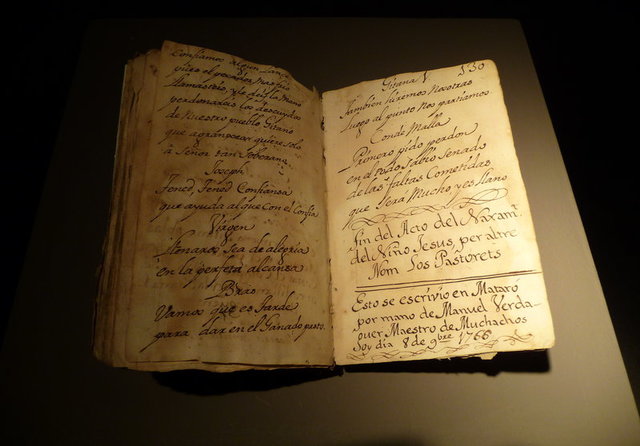 Confiamos algun
pues el
y le deis la mano
perdonareis los descuydos
de nuestro pueblo Gitano
que agranpesar quiere solo
a Señor tan Soberano
Joseph
Tened, Tened Confiansa
que ayuda al que con el Confia
Virgen
Llenaros sea de alegria
en la perfeta alcansa
Bras
Vamos que es tarde
para dar en el Ganado pasto.
Gitana V 130
Tambien hiremos Nosotras
luego al punto nos partiamos.
Conde Malla
Primero pido perdon
en el todo Sabio Senado
de las faltas Cometidas
que Será Mucho y es llano
fin del Acto del Naxamt.
del Niño Jesus per altre
Nom Los Pastorets
Esto se escrivio en Mataró
por mano de Manuel Verda-
guer Maestro de Muchachos
Soy dia 8 de 9bre 1766